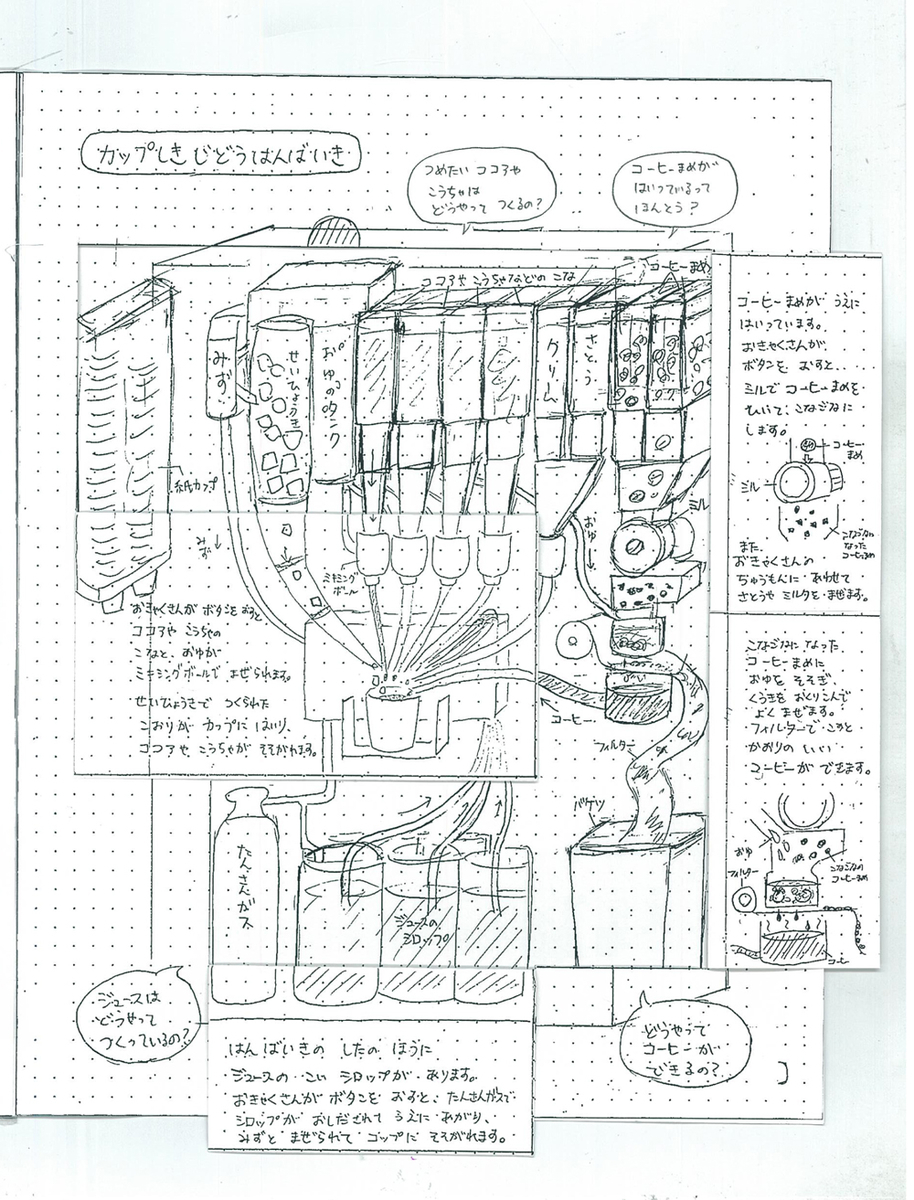 カップしき じどうはんばいき
つめたい ココアや
こうちゃは
どうやって つくるの?
コーヒーまめが
はいっているって
ほんとう?
ココアや こうちゃなどの こな
コーヒーまめ
みず
せいひょうき
おゆのタンク
クリーム
さとう
紙カップ
みず
ミキシング
ボール
おゆ
ミル
おきゃくさんが ボタンを おすと
ココアや こうちゃの
こなと、おゆが
ミキシングボールで まぜられます。
せいひょうきで つくられた
こおりが カップに はいり、
ココアや こうちゃが そそがれます。
コーヒー
フィルター
バケツ
たんさんガス
ジュースの
シロップ
コーヒーまめが うえに
はいっています。
おきゃくさんが
ボタンを おすと.....
ミルで コーヒーまめを
ひいて、こなごなに
します。
コーヒー
まめ
ミル
こなごなに
なった
コーヒーまめ
また、
おきゃくさんの
ちゅうもんに あわせて
さとうや ミルクを まぜます。
こなごなに なった
コーヒーまめに
おゆを そそぎ
くうきを おくりこんで
よく まぜます。
フィルターで こすと
かおりの いい
コーヒーが できます。
おゆ
フィルター
こなごなの
コーヒーまめ
コーヒー
ジュースは
どうやって
つくっているの?
どうやって
コーヒーが
できるの?
はんばいきの したの ほうに
ジュースの こい シロップが あります。
おきゃくさんが ボタンを おすと、たんさんガスで
シロップが おしだされて うえに あがり、
みずと まぜられて コップに そそがれます。